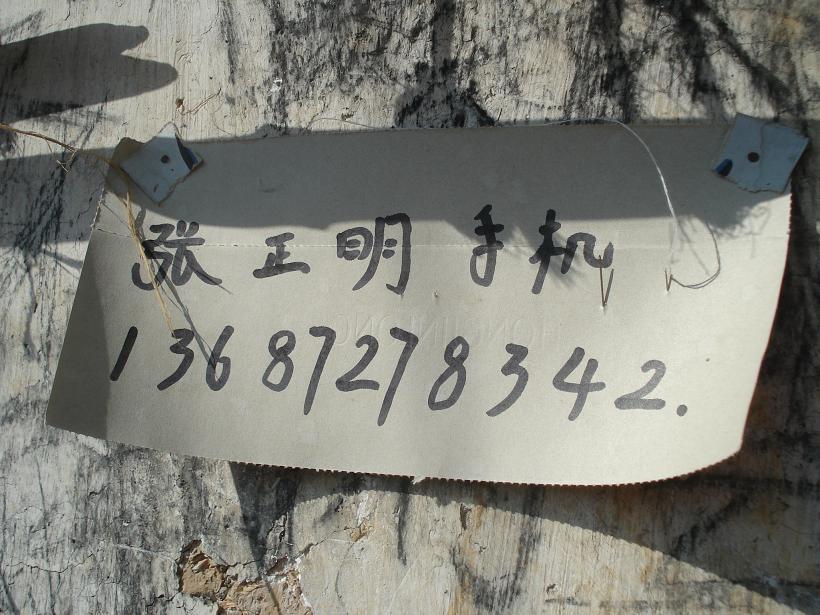 张正明 手机
13687278342.